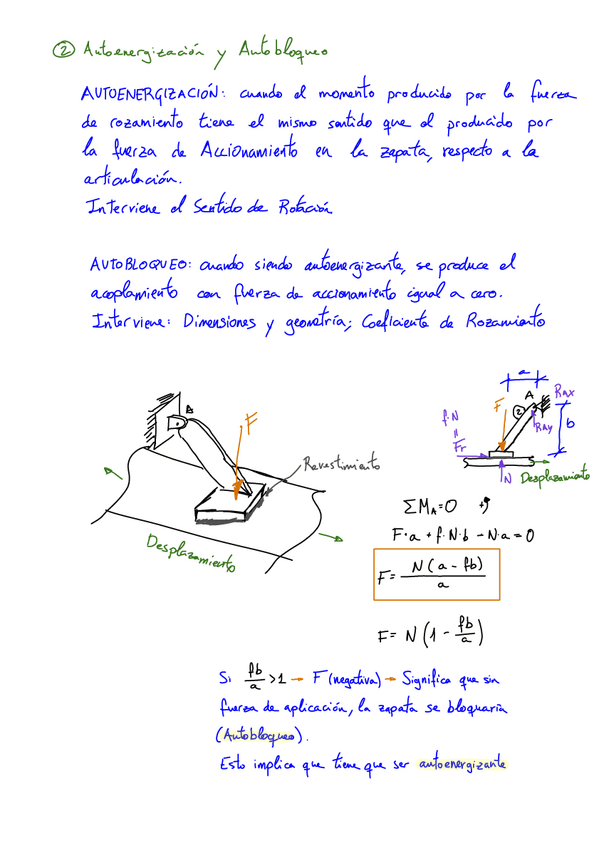 ② Autoenergización y Autobloqueo
AUTOENERGIZACIÓN: cuando el momento producido por la fuerza
de rozamiento tiene el mismo sentido que el producido por
la fuerza de Accionamiento en la zapata, respecto a la
articulación.
Interviene el Sentido de Rotación
AUTOBLOQUEO: cuando siendo autoenergizante, se produce el
acoplamiento con fuerza de accionamiento igual a cero.
Interviene: Dimensiones y geometría; Coeficiente de Rozamiento
A
F
Revestimiento
Desplazamiento
a
A
RAX
F
2
RAY
b
f·N
=
Fr
N
Desplazamiento
ΣMA=0 +
F·a + f·N·b - N·a = 0
F = N(a - fb) / a
F = N(1 - fb/a)
Si fb/a >1 → F (negativa) → Significa que sin
fuerza de aplicación, la zapata se bloquaría
(Autobloqueo).
Esto implica que tiene que ser autoenergizante